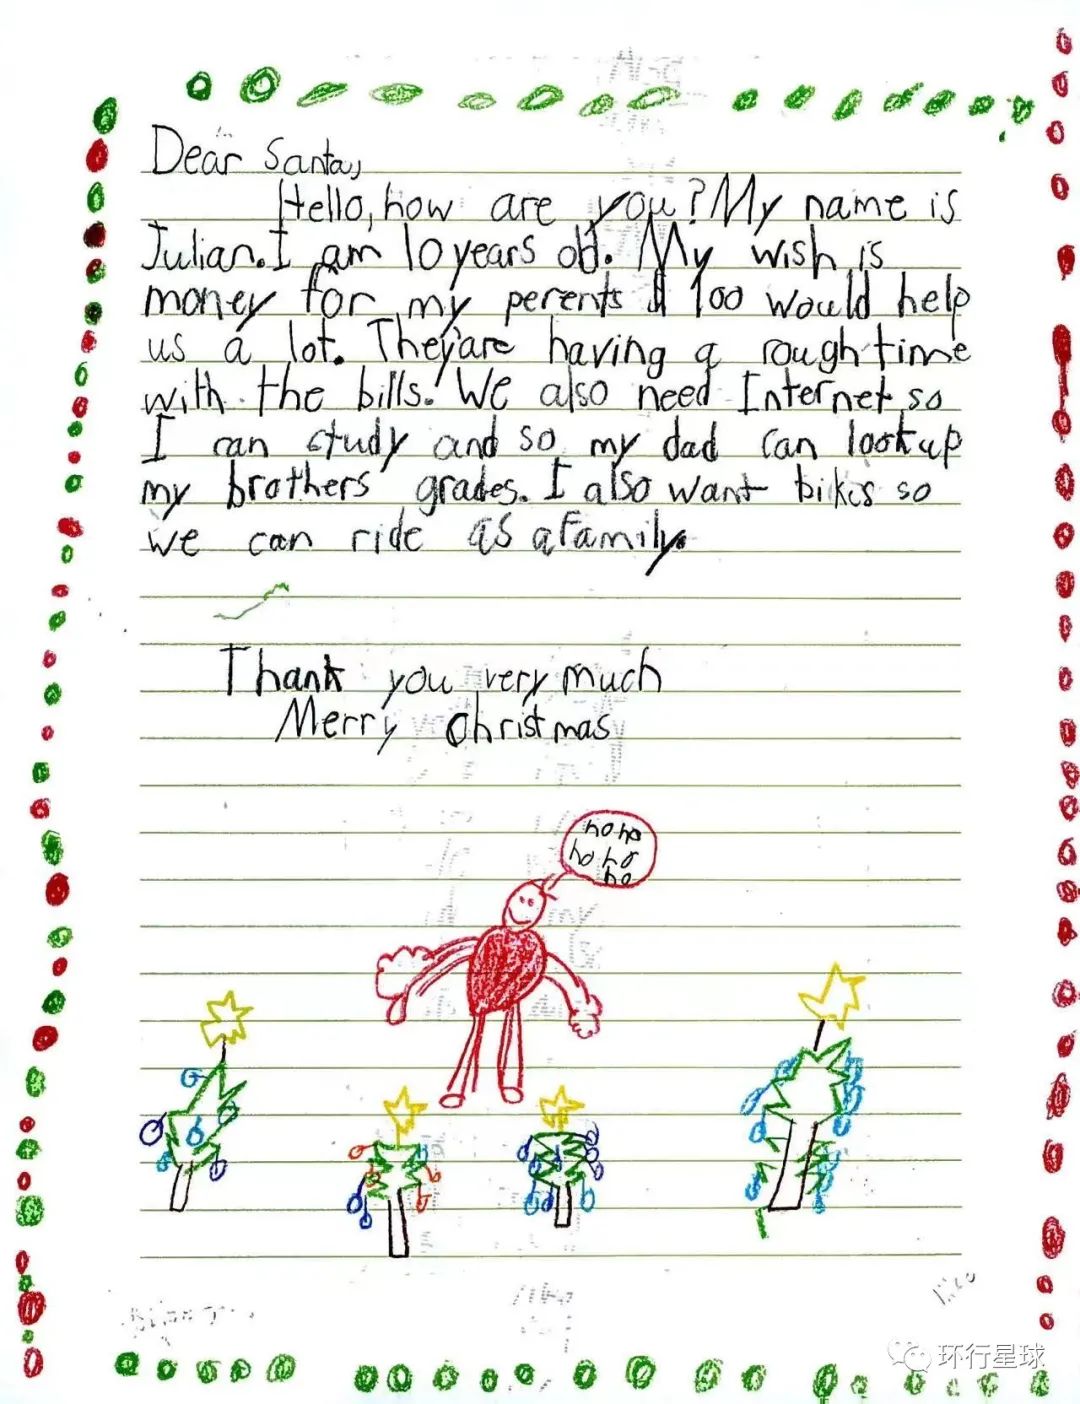 Dear Santa,
Hello, how are you? My name is
Julian. I am 10 years old. My wish is
money for my perents $ 100 would help
us a lot. They'are having a rough time
with the bills. We also need Internet so
I can study and so my dad can look up
my brothers grades. I also want bikes so
we can ride as a family.
Thank you very much
Merry Christmas
ho ho
ho ho
ho
环行星球